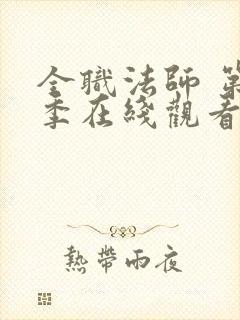 全職法師 第
季在綫觀看
熱帶雨夜